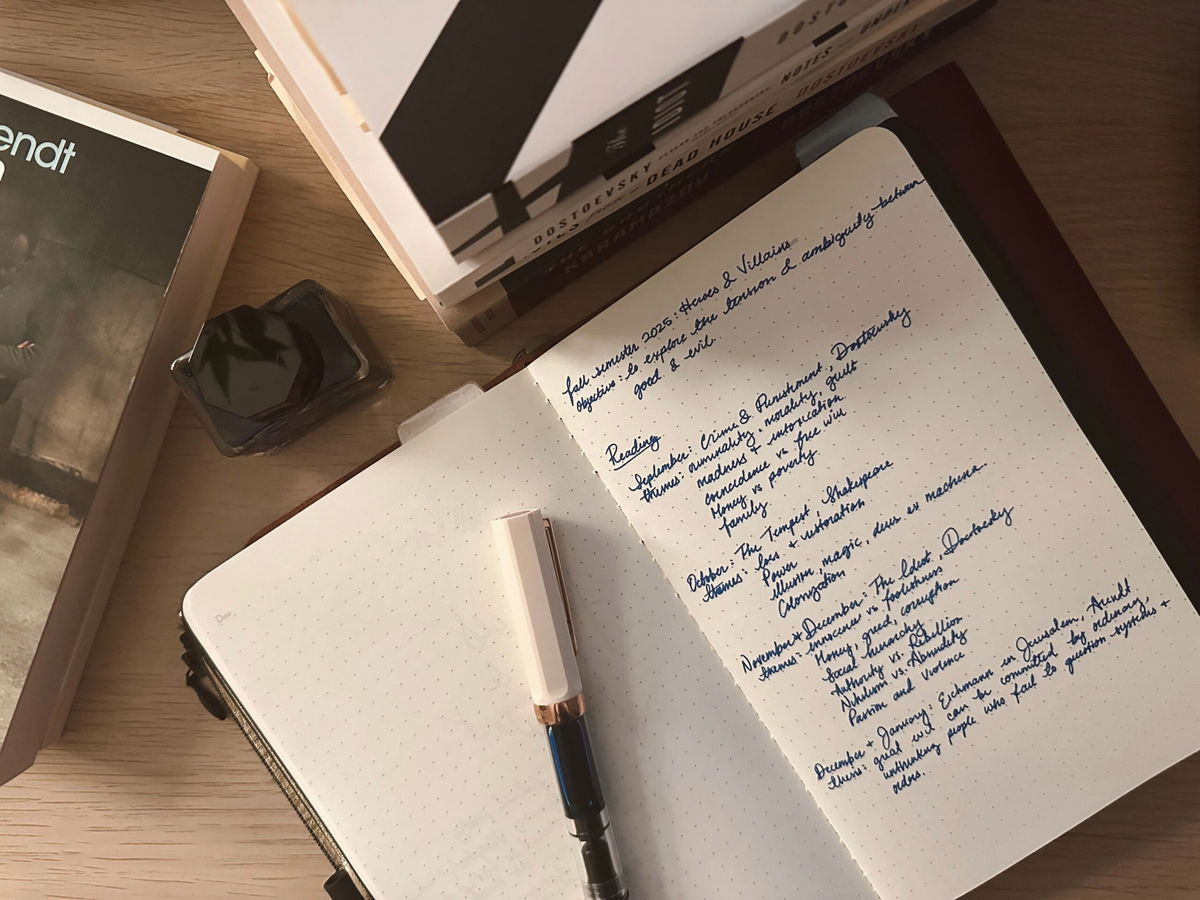 endt
DOSTO
The IDIOT
DOSTOEVSKY
NOTES from UNDER
DEAD HOUSE
DOSTOEVSKY
KARAMAZOV
Fall semester 2025: Heroes & Villains
Objective: to explore the tension & ambiguity between
good & evil.
Reading
September: Crime & Punishment, Dostoevsky
themes: criminality, morality, guilt
madness + intoxication
coincidence vs free will
Money vs poverty
family
October: The Tempest, Shakespeare
themes: loss + restoration
Power
illusion, magic, deus ex machina..
Colonization
November + December: The Idiot, Dostoevsky
themes: innocence vs foolishness
Money, greed, corruption
Social hierarchy
Authority vs. Rebellion
Nihilism vs. Absurdity
Passion and violence
December + January: Eichmann in Jerusalem, Arendt
thesis: great evil can be committed by ordinary,
unthinking people who fail to question systems +
orders.